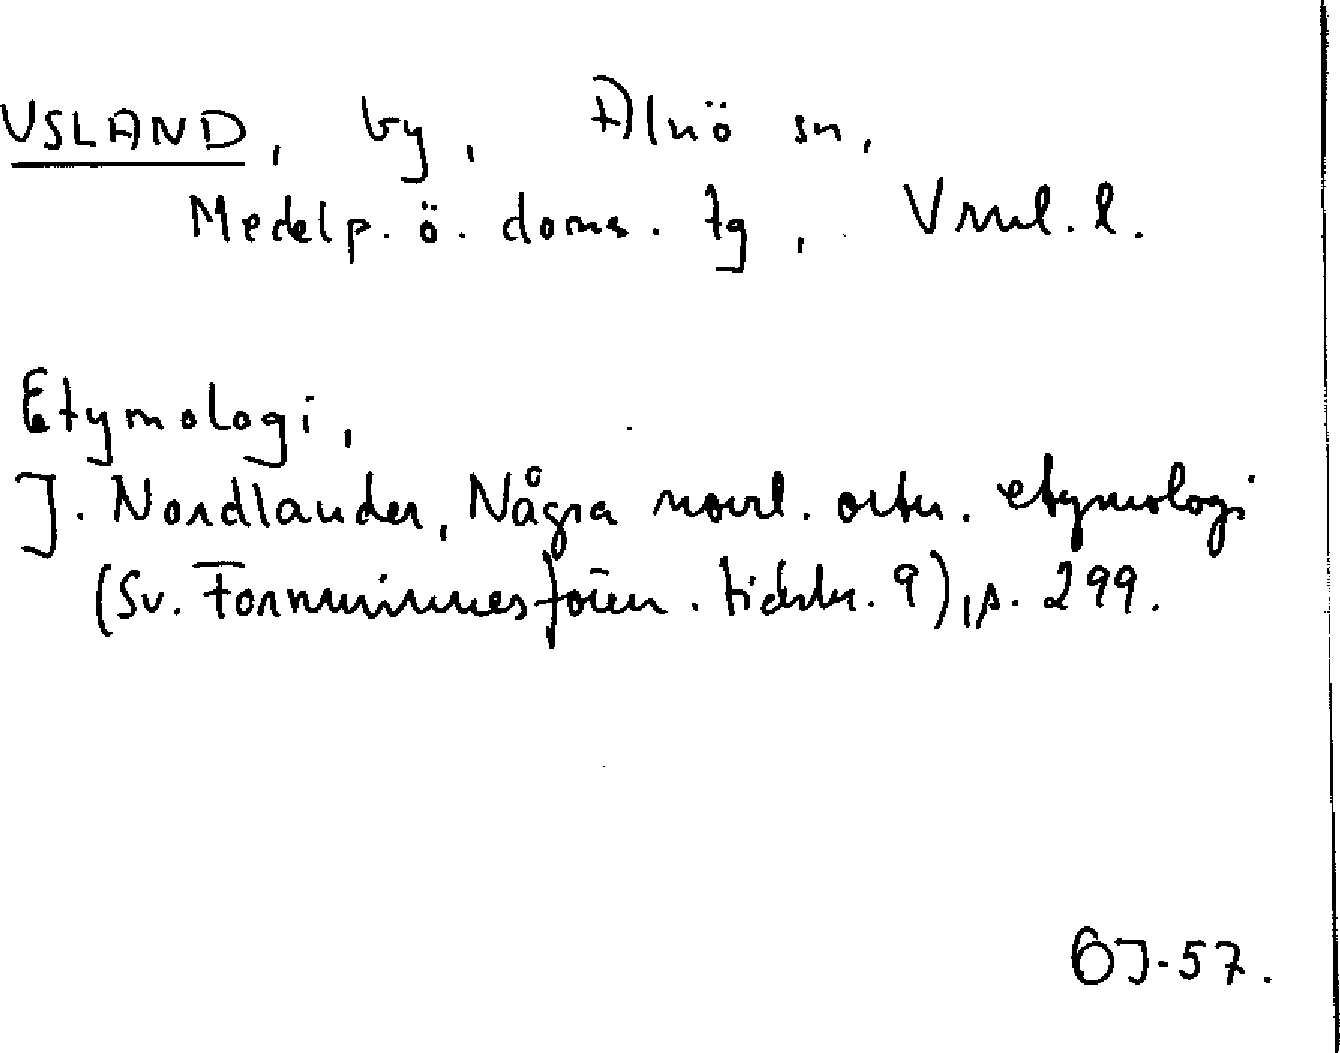 USLAND, by, Alnö sn,
Medelp. ö. doms. tg, Vrnl. l.
Etymologi,
J. Nordlander, Några norrl. ortn. etymologi
(Sv. Fornminnesfören. tidskr. 9), s. 299.
ÖJ-57.